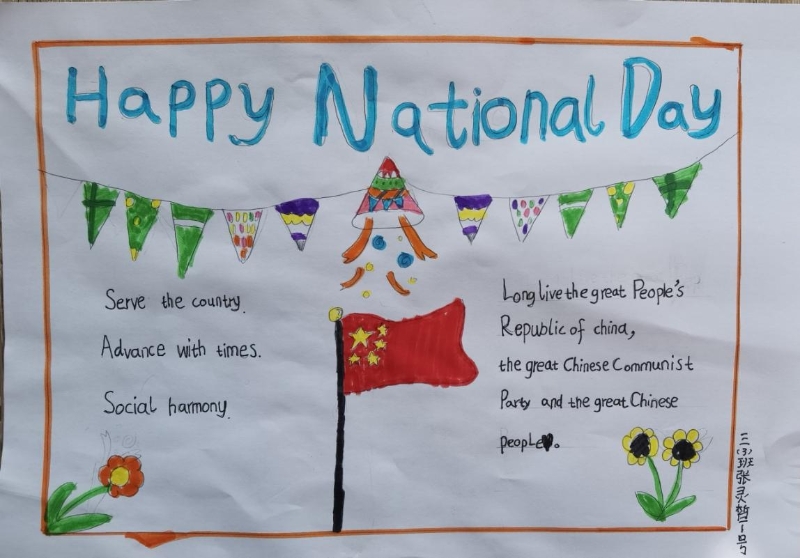 Happy National Day
Serve the country.
Advance with times.
Social harmony.
Long live the great People's
Republic of china,
the great Chinese Communist
Party and the great Chinese
people.
三(3)班张灵皙1号